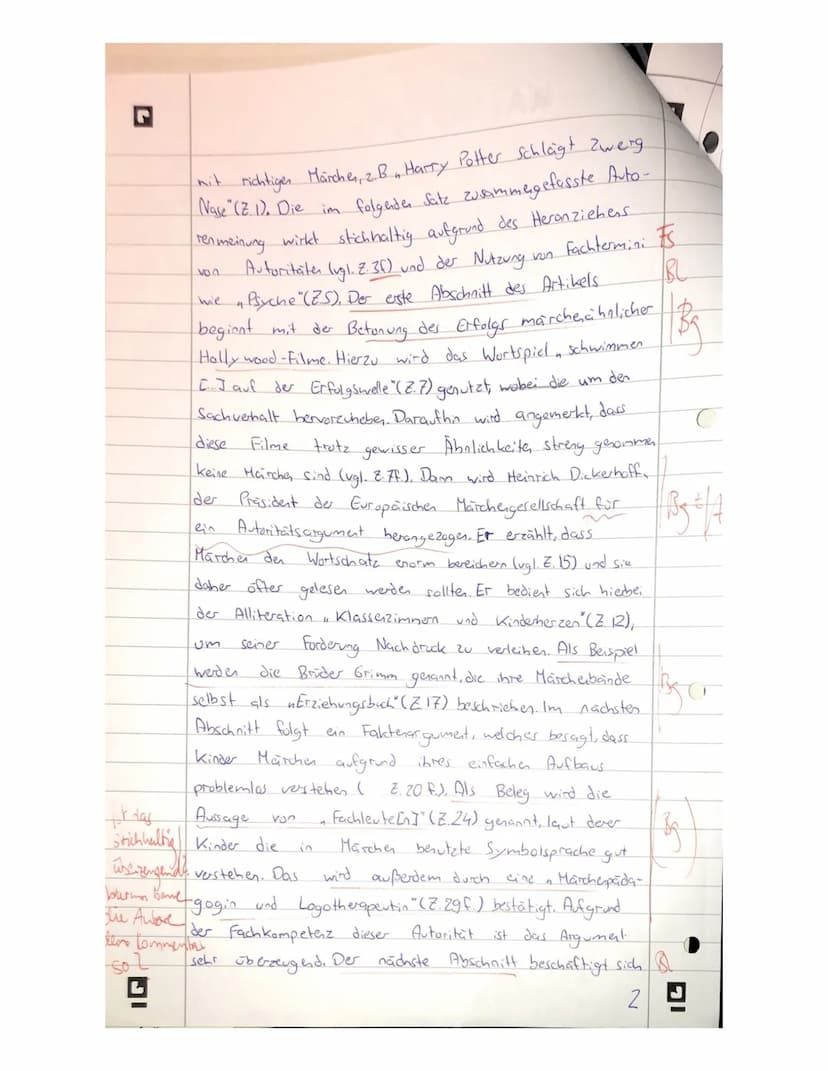 mit richtigen Märchen, z.B „Harry Potter schlägt Zwerg
Nase"(Z.1). Die im folgenden Satz zusammengefasste Auto-
renmeinung wirkt stichhaltig aufgrund des Heranziehens
von Autoritäten (vgl. Z.3f) und der Nutzung von Fachtermini Fs
wie „Psyche"(Z.5). Der erste Abschnitt des Artikels Bl
beginnt mit der Betonung des Erfolgs märchenähnlicher Bg
Hollywood-Filme. Hierzu wird das Wortspiel „schwimmen
[..] auf der Erfolgswelle"(Z.7) genutzt, wobei die um den
Sachverhalt hervorzuheben. Daraufhin wird angemerkt, dass
diese Filme trotz gewisser Ähnlichkeiten streng genommen
keine Märchen sind (vgl. Z.7f.). Dann wird Heinrich Dickerhoff,
der Präsident der Europäischen Märchengesellschaft für Bg
ein Autoritätsargument herangezogen. Er erzählt, dass
Märchen den Wortschatz enorm bereichern (vgl. Z.15) und sie
daher öfter gelesen werden sollten. Er bedient sich hierbei
der Alliteration „Klassenzimmern und Kinderherzen"(Z.12),
um seiner Forderung Nachdruck zu verleihen. Als Beispiel
werden die Brüder Grimm genannt, die ihre Märchenbände Bg
selbst als „Erziehungsbuch"(Z.17) beschrieben. Im nächsten
Abschnitt folgt ein Faktenargument, welches besagt, dass
Kinder Märchen aufgrund ihres einfachen Aufbaus
problemlos verstehen ( Z.20 f.). Als Beleg wird die
Aussage von „Fachleute[n]"(Z.24) genannt, laut derer
Kinder die in Märchen benutzte Symbolsprache gut (Bg)
verstehen. Das wird außerdem durch eine „Märchenpäda-
gogin und Logotherapeutin"(Z.29f.) bestätigt. Aufgrund
der Fachkompetenz dieser Autorität ist das Argument
sehr überzeugend. Der nächste Abschnitt beschäftigt sich Bl
das
stichhaltig/
überzeugend?
die
so?
2